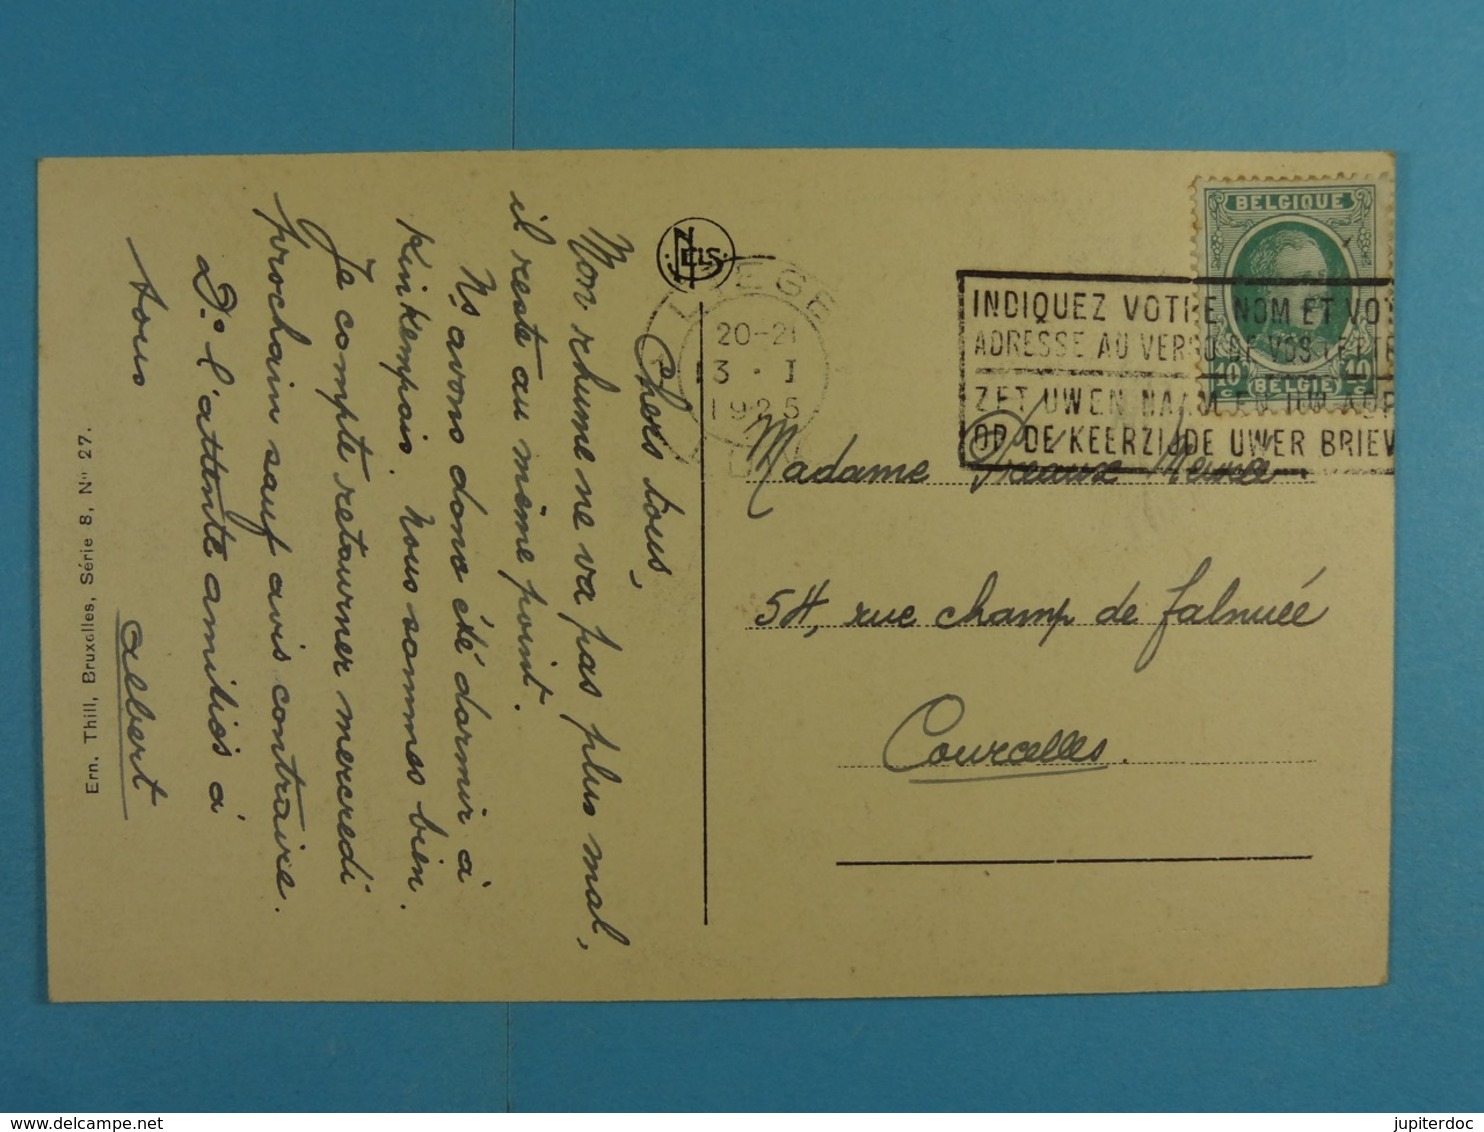 Chers tous,
Mon rhume ne va pas plus mal,
il reste au même point.
Ns avons donc été dormir à
Kinkempois. Nous sommes bien.
Je compte retourner mercredi
prochain sauf avis contraire.
Ds l'attente amitiés à
tous
Albert
Ern. Thill, Bruxelles, Série 8, N° 27.
NELS
LIEGE
20-21
13 · I
1925
BELGIQUE
10 10
BELGIE
INDIQUEZ VOTRE NOM ET VOT
ADRESSE AU VERSO DE VOS LETTE
ZET UWEN NAAM EN UW ADR
OP DE KEERZIJDE UWER BRIEV
Madame Preaux
54, rue champ de falnuée
Courcelles.
delcampe.net
jupiterdoc